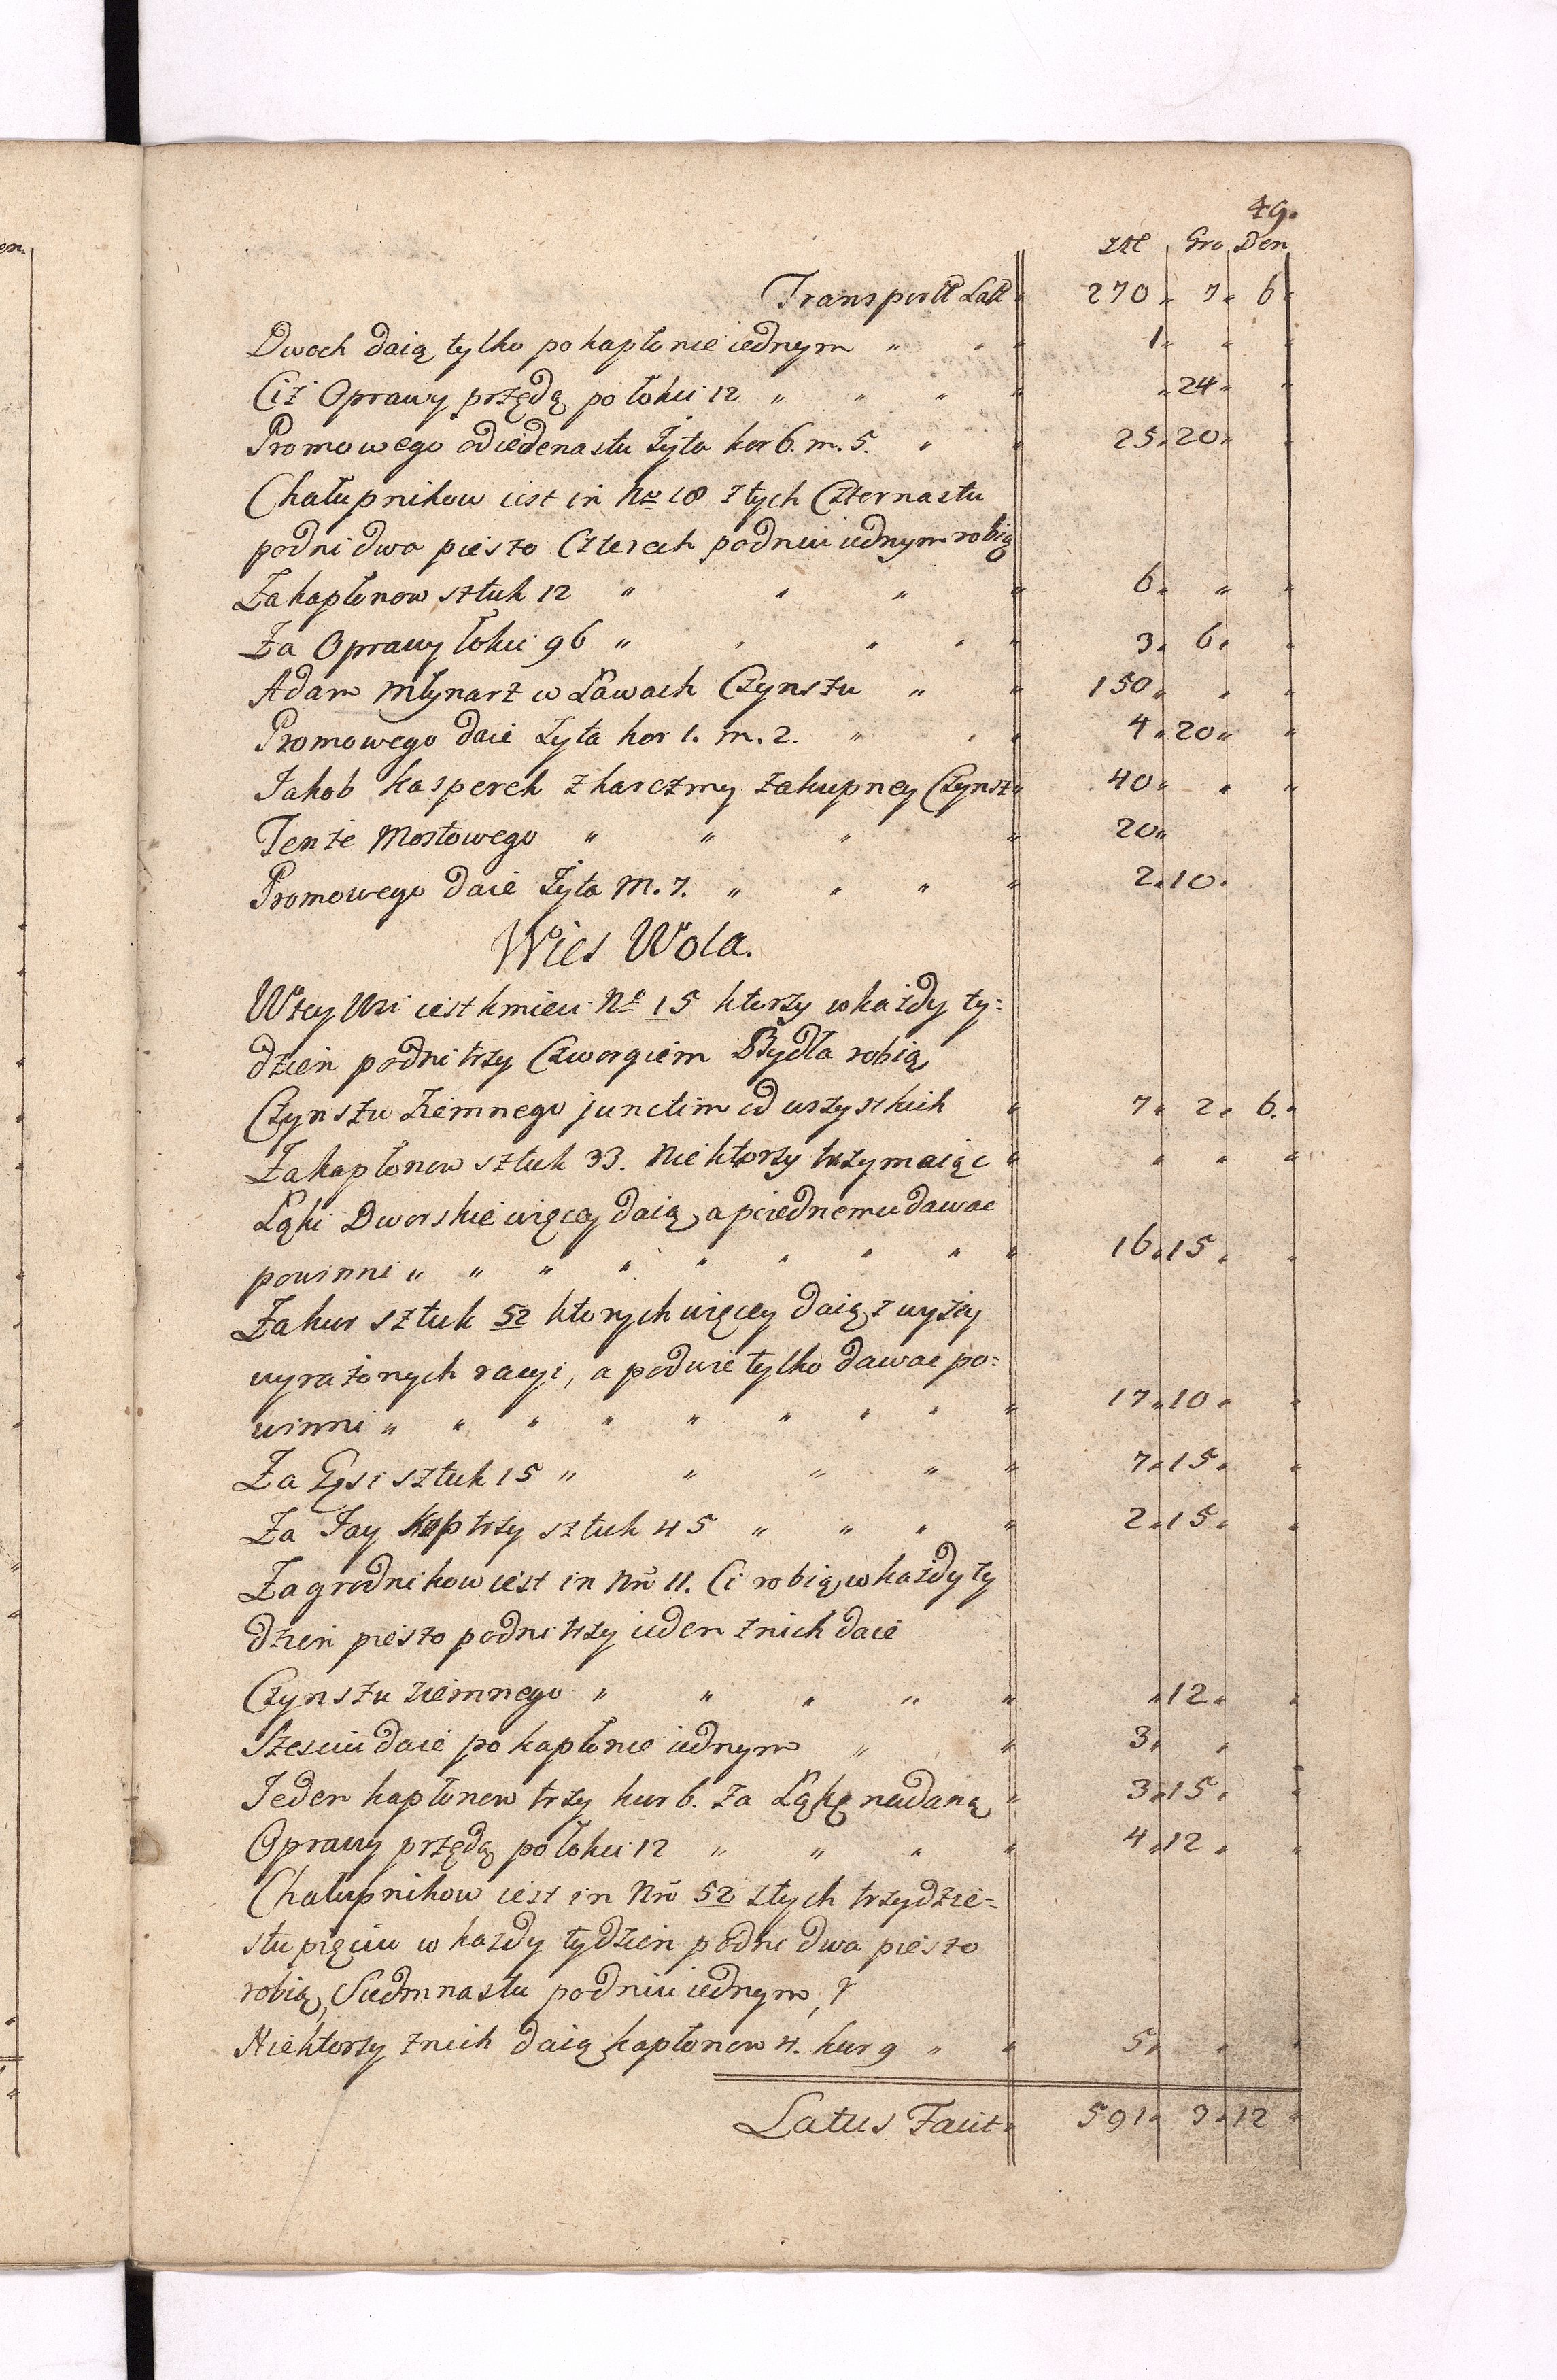 49.
Złł Gro Den
Transportt Latt 270 7 6
Dwoch daią tylko po kapłonie iednym 1
Ciż Oprawy przędą po łokci 12 24
Promowego od iedenastu żyta kor 6. m. 5. 25 20
Chałupnikow iest in Nro 18 z tych Czternastu
podni dwa pieszo Czterech podniu iednym robią
Za kapłonow sztuk 12 6
Za Oprawy łokci 96 3 6
Adam Młynarz w Ławach Czynszu 150
Promowego daie żyta kor 1. m. 2. 4 20
Jakob Kasperek z karczmy zakupney Czynsz 40
Tenże Mostowego 20
Promowego daie żyta M. 7. 2 10
Wies Wola.
W tey Wsi iest kmieci No 15 ktorzy w każdy ty=
dzien podni trzy Czworgiem Bydła robią
Czynszu ziemnego junctim od wszystkich 7 2 6.
Za kapłonow sztuk 33. Niektorzy trzymaiąc
Łąki Dworskie więcey daią, a po iednemu dawac
powinni 16 15
Za kur sztuk 52 ktorych więcey daią z wyżey
wyrażonych racyi, a podwie tylko dawac po=
winni 17 10
Za Gęsi sztuk 15 7 15
Za Jay kop trzy sztuk 45 2 15
Zagrodnikow iest in Nro 11. Ci robią w każdy ty
dzien pieszo podni trzy ieden z nich daie
Czynszu ziemnego 12
Szesciu daie po kapłonie iednym 3
Jeden kapłonow trzy kur 6. za Łąkę nadaną 3 15
Oprawy przędą po łokci 12 4 12
Chałupnikow iest in Nro 52 z tych trzydzie=
stu pięciu w każdy tydzien podni dwa pieszo
robią, Siedmnastu podniu iednym,
Niektorzy z nich daią kapłonow 4. kur 9 5
Latus Facit 591 3 12